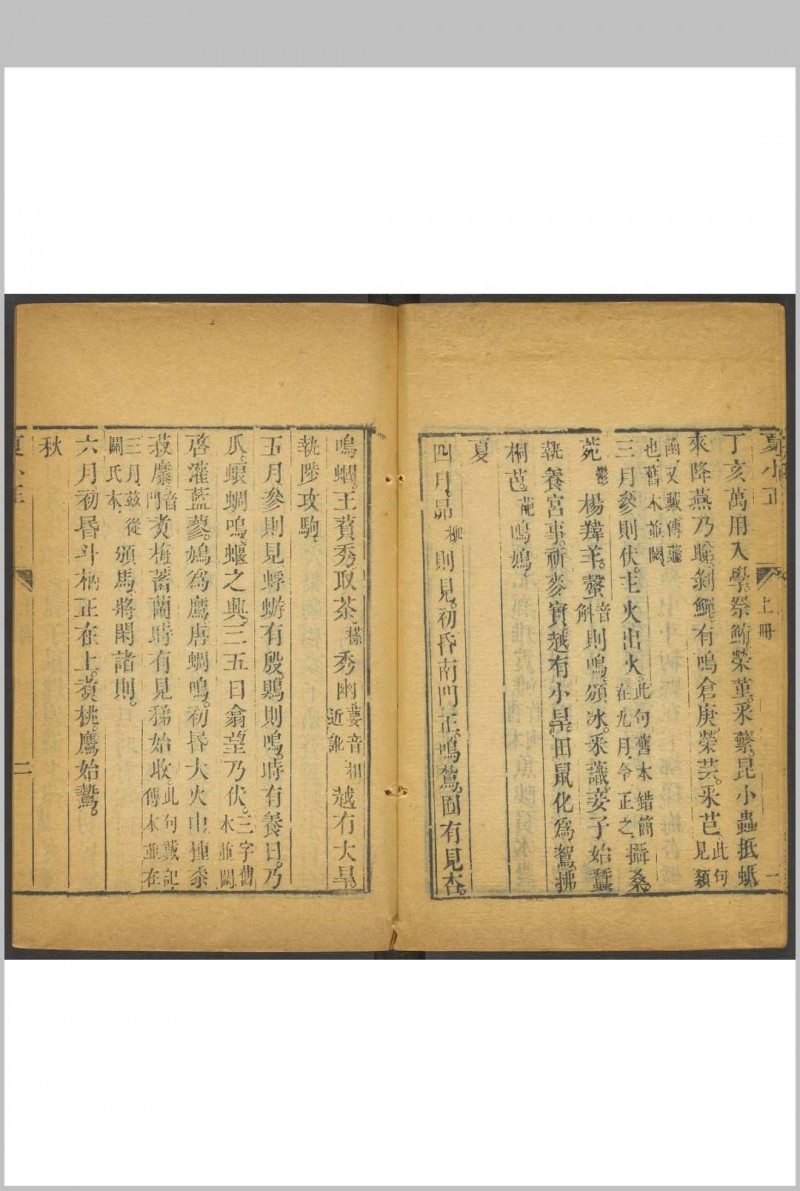 夏小正
上冊
一
丁亥萬用入學。祭鮪榮堇。采蘩昆小蟲抵蚳
來降燕乃睇。剝鱓。有鳴倉庚。榮芸。采芑此句見類
函又戴傳
也舊本並闕
三月參則伏。主火出火此句舊本錯簡在九月今正之攝桑。
楊羵羊。螜音斛則鳴頒冰。采識妾子始蠶
執養宮事。祈麥實越有小旱。田鼠化為鴽拂
桐芭葩鳴鳩。
夏
四月昴柳則見。初昏南門正。鳴。囿有見杏。
鳴蜮。王萯秀取荼。秀幽葽音相近訛越有大旱。
執陟攻駒。
五月參則見蜉蝣有殷。鴃則鳴。時有養日。乃
瓜。蜋蜩鳴。蝘之興。三五日翕望乃伏三字舊本並闕
啓灌藍蓼。鳩爲鷹唐蜩鳴。初昏大火中種黍
菽糜音門煑梅蓄蘭。時有見稊始收此句戴記傳本並在
三月茲從關氏本頒馬。將閑諸則。
六月初昏斗柄正在上。煑桃鷹始鷙。
秋
夏小正
二